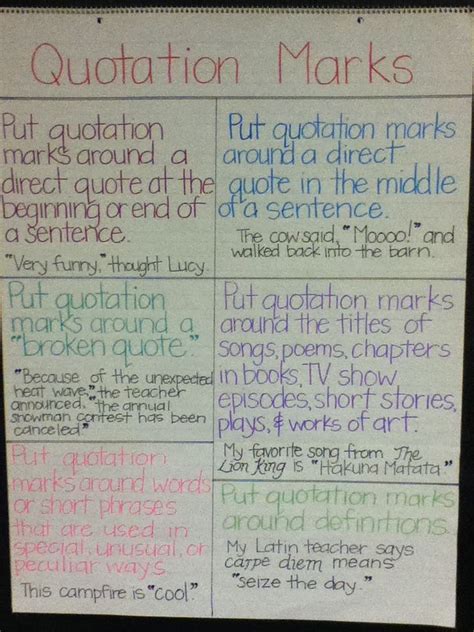 Quotation Marks
Put quotation
marks around a
direct quote at the
beginning or end of
a sentence.
"Very funny," thought Lucy.
Put quotation marks
around a direct
quote in the middle
of a sentence.
The cow said, "Moooo!" and
walked back into the barn.
Put quotation
marks around a
"broken quote."
"Because of the unexpected
heat wave," the teacher
announced, "the annual
snowman contest has been
canceled."
Put quotation marks
around the titles of
songs, poems, chapters
in books, TV show
episodes, short stories,
plays, & works of art.
My favorite song from The
Lion King is "Hakuna Matata."
Put quotation
marks around words
or short phrases
that are used in
special, unusual, or
peculiar ways.
This campfire is "cool."
Put quotation marks
around definitions.
My Latin teacher says
carpe diem means
"seize the day."